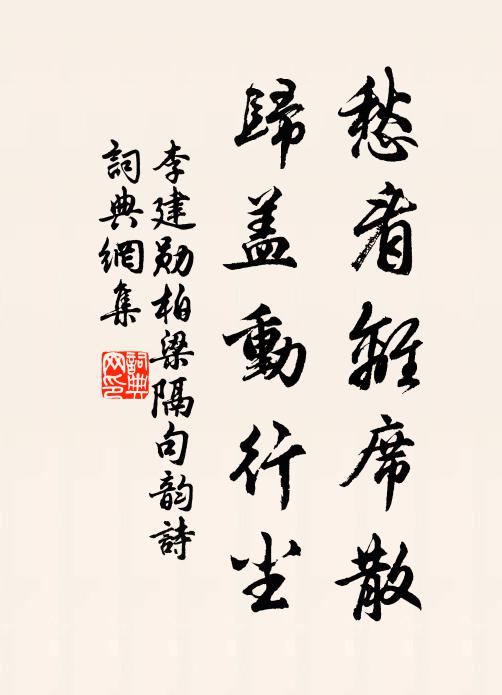 愁看離席散
歸蓋動行尘
李建勋柏梁隔句韵詩
詞典網集
詞典網印